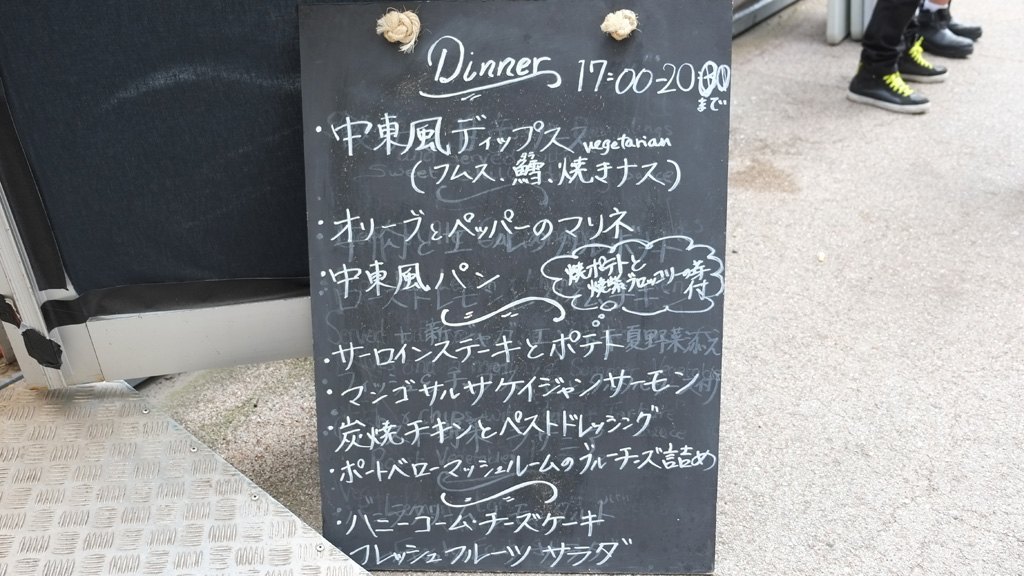 Dinner 17:00-20:00
まで
・中東風ディップス vegetarian
(フムス、鱈、焼きナス)
・オリーブとペッパーのマリネ
・中東風パン
焼ポテトと
焼紫ブロッコリー等
付
・サーロインステーキとポテト
・マンゴサルサケイジャンサーモン
・炭焼チキンとペストドレッシング
・ポートベローマッシュルームのブルーチーズ詰め
・ハニーコーム・チーズケーキ
フレッシュフルーツサラダ